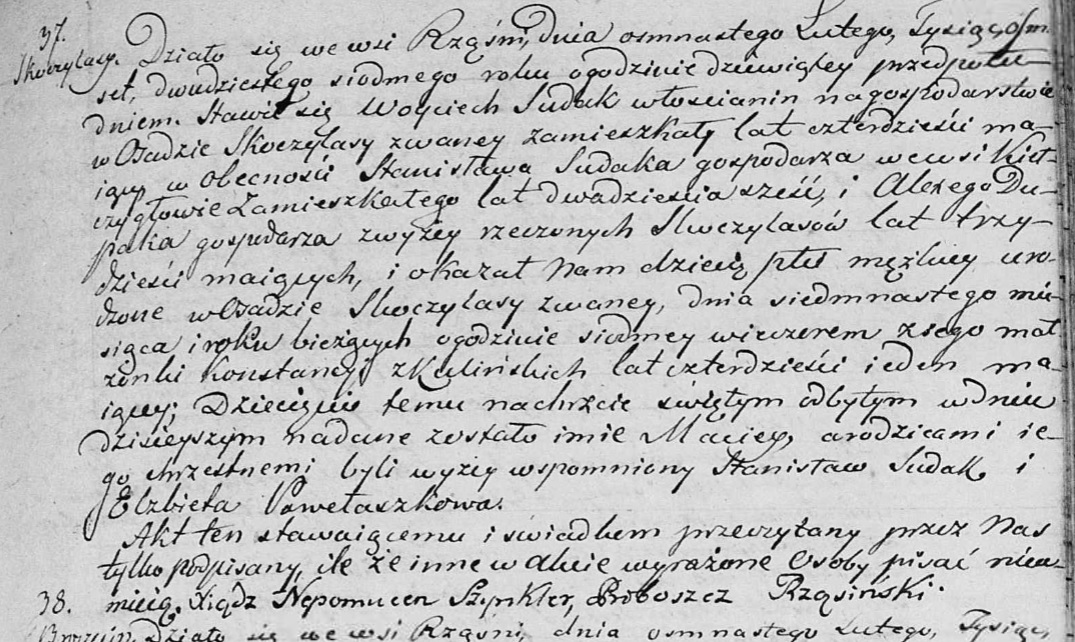 37.
Skoczylasy. Działo się we wsi Rząśni, dnia osmnastego Lutego, Tysiąc ośm-
set, dwudziestego siodmego roku ogodzinie dziewiątey przedpołu-
dniem. Stawił się Woyciech Sudak włoscianin nagospodarstwie
w Osadzie Skoczylasy zwaney zamieszkały lat czterdzieści ma-
iący w obecności Stanisława Sudaka gospodarza wewsi Kieł-
czygłowie Zamieszkałego lat dwadzieścia sześć, i Alexego Du-
paka gospodarza zwyżey rzeczonych Skoczylasów lat trzy-
dzieści maiących, i okazał Nam dziecię płci męzkiey uro-
dzone w Osadzie Skoczylasy zwaney, dnia siedmnastego mie-
siąca i roku bieżących ogodzinie siodmey wieczorem z iego mał
zonki Konstancyi z Kulińskich lat czterdzieści ieden ma-
iącey; Dziecięciu temu nachrzcie świętym odbytym w dniu
dzisieyszym nadane zostało imie Maciey, arodzicami ie-
go chrzestnemi byli wyzey wspomniony Stanisław Sudak i
Elzbieta Pawełaszkowa.
Akt ten stawaiącemu i świadkom przeczytany przez Nas
tylko podpisany, ile że inne w akcie wyrażone Osoby pisać nieu-
mieią. Xiądz Nepomucen Szynkler, Proboszcz Rząsiński.
38.
Działo się we wsi Rząśni, dnia osmnastego Lutego, Tysiąc